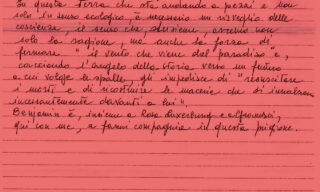 In questa terra che sta andando a pezzi e non
solo in senso ecologico, è necessario un risveglio delle
coscienze, il senso che abbiamo non
solo la ragione, ma anche la forza di
fermare "il vento che viene dal paradiso" e,
cacciando l'angelo della storia verso un futuro
a cui volge le spalle, gli impedisce di "resuscitare
i morti e di ricostruire le macerie che si innalzano
incessantemente davanti a lui".
Benjamin è, insieme a Rosa Luxemburg e a Gramsci,
qui con me, a farmi compagnia in questa prigione.